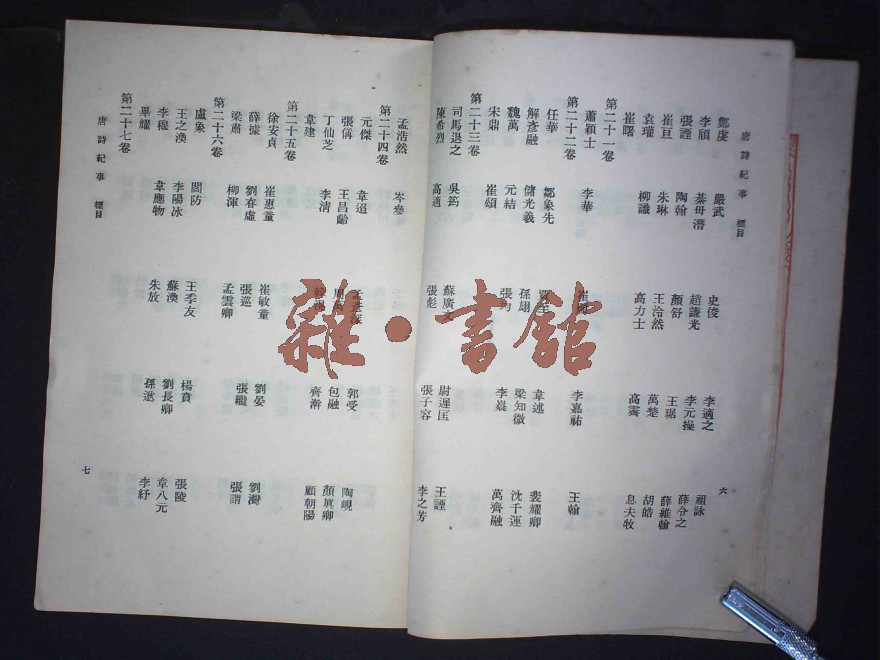 唐詩紀事 標目 六
鄭虔 嚴武 史俊 李適之 祖詠
李頎 綦毋潛 趙謙光 李元操 薛令之
張諲 陶翰 顏舒 王琚 薛維翰
崔亘 朱琳 王泠然 萬楚 胡皓
袁瓘 柳識 高力士 高霽 息夫牧
崔曙
第二十一卷
蕭穎士 李華 李嘉祐 王翰
第二十二卷
任華 鄒象先 賈至 韋述 裴耀卿
解彥融 儲光羲 孫翃 梁知微 沈千運
魏萬 元結 張均 李嶷 萬齊融
宋鼎 崔頌
第二十三卷
司馬退之 吳筠 蘇廣文 尉遲匡 王諲
陳希烈 高適 張彪 張子容 李之芳
孟浩然 岑參
第二十四卷
元傑 韋迢 孟彥深 郭受 陶峴
張偁 王昌齡 包融 顏眞卿
丁仙芝 李清 齊澣 顧朝陽
韋建
第二十五卷
徐安貞 崔惠童 崔敏童 劉晏 劉灣
薛據 劉眘虛 張巡 張繼 張謂
梁肅 柳渾 孟雲卿
第二十六卷
盧象 閻防 王季友 楊賁 張陵
王之渙 李陽冰 蘇渙 劉長卿 章八元
李穆 韋應物 朱放 孫逖 李紓
畢耀
第二十七卷
唐詩紀事 標目 七
雜·書館